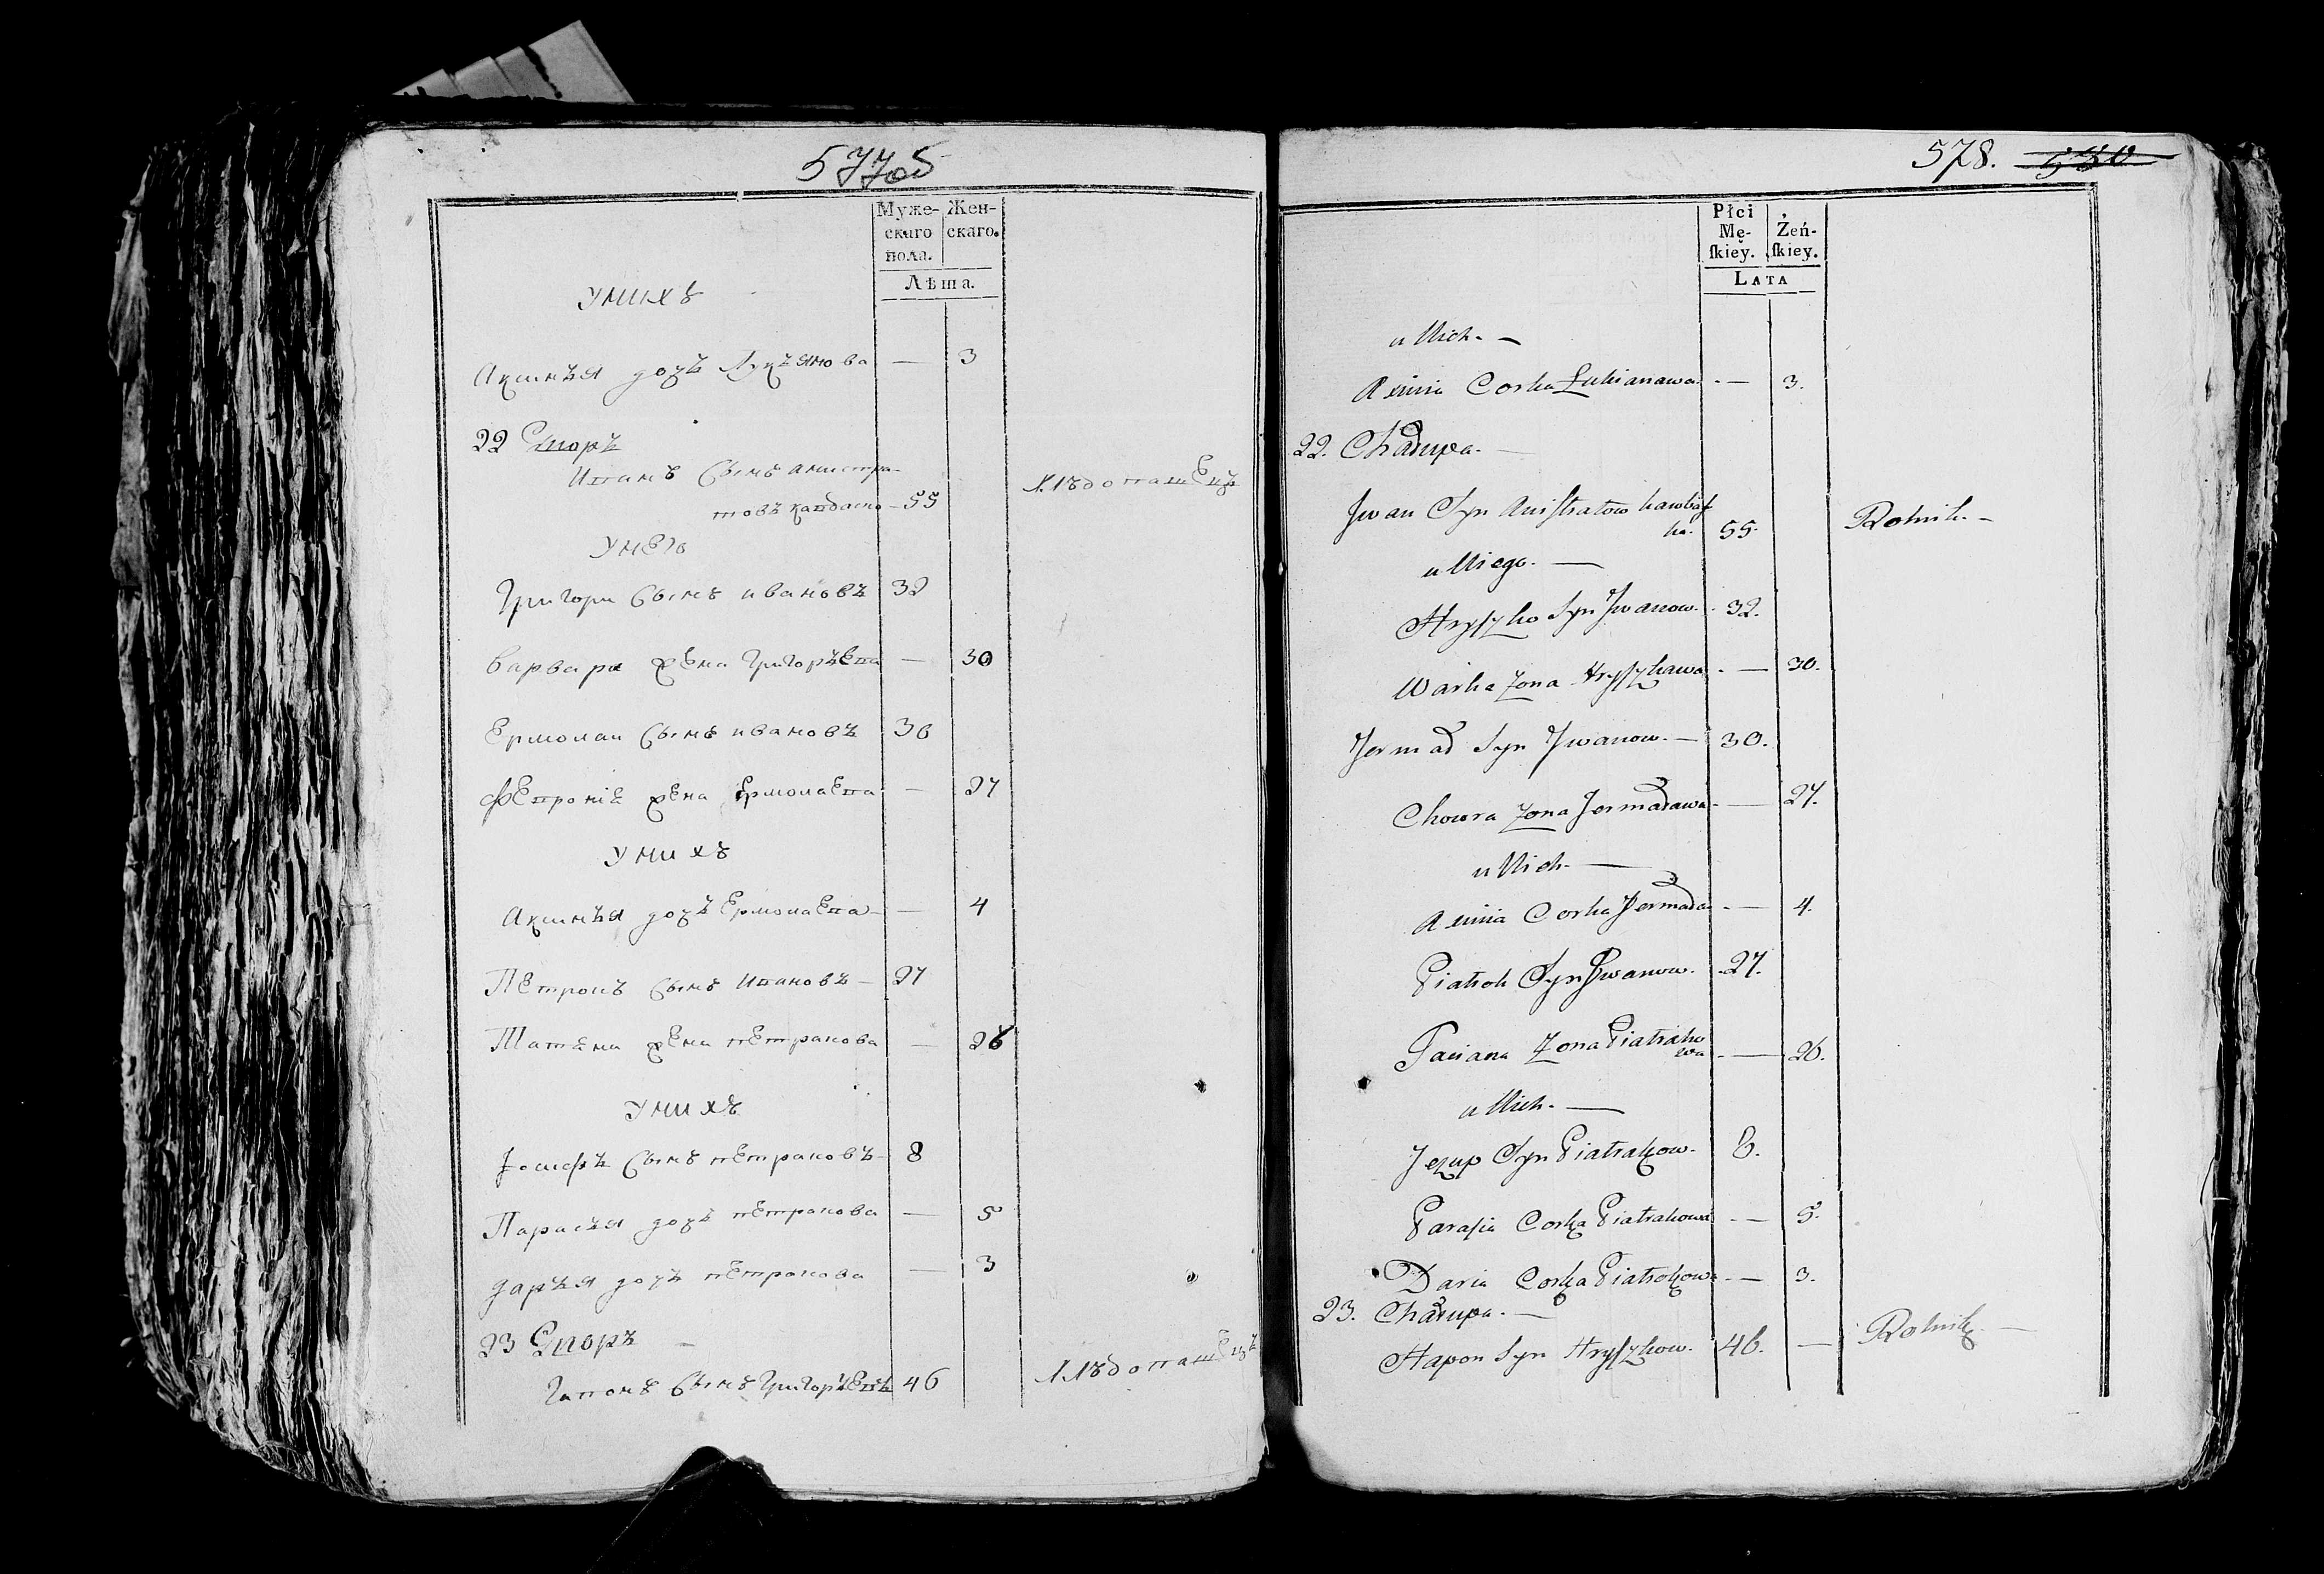 577об
Муже-
скаго
пола.
Жен-
скаго.
Лѣта.
У нихъ
Аксинья дочь Лукьянова — 3
22 Дворъ
Иванъ Сынъ Анистра-
товъ Кавбаско — 55
Хлѣбопашецъ
У него
Григори Сынъ Ивановъ 32
Варвара жена Григорьева — 30
Ермолаи Сынъ Ивановъ 30
Февронія жена Ермолаева — 27
У нихъ
Аксинья дочь Ермолаева — 4
Петрокъ Сынъ Ивановъ — 27
Татяна жена Петракова — 26
У нихъ
Іосифъ Сынъ Петраковъ 8
Парасья дочь Петракова — 5
Дарья дочь Петракова — 3
23 Дворъ —
Гапонъ Сынъ Григорьевъ 46
Хлѣбопашецъ
578. 530
Płci
Mę-
ſkiey.
Żeń-
ſkiey.
LATA
u Nich. —
Axinia Corka Lukianawa. — 3.
22. Chałupa. —
Jwan Syn Aniſtratow Kawbaſ
ka. 55.
Rolnik. —
u Niego. —
Hryſzko Syn Jwanow. 32.
Warka Zona Hryſzkawa — 30.
Jermał Syn Jwanow. — 30.
Chowra Zona Jermaława — 27.
u Nich. —
Axinia Corka Jermała — 4.
Piatrok Syn Jwanow. 27.
Taciana Zona Piatrako
wa — 26.
u Nich. —
Jezup Syn Piatrakow. 8.
Paraſia Corka Piatrakowa — 5.
Daria Corka Piatrakowa — 3.
23. Chałupa. —
Hapon Syn Hryſzkow. 46. —
Rolnik. —